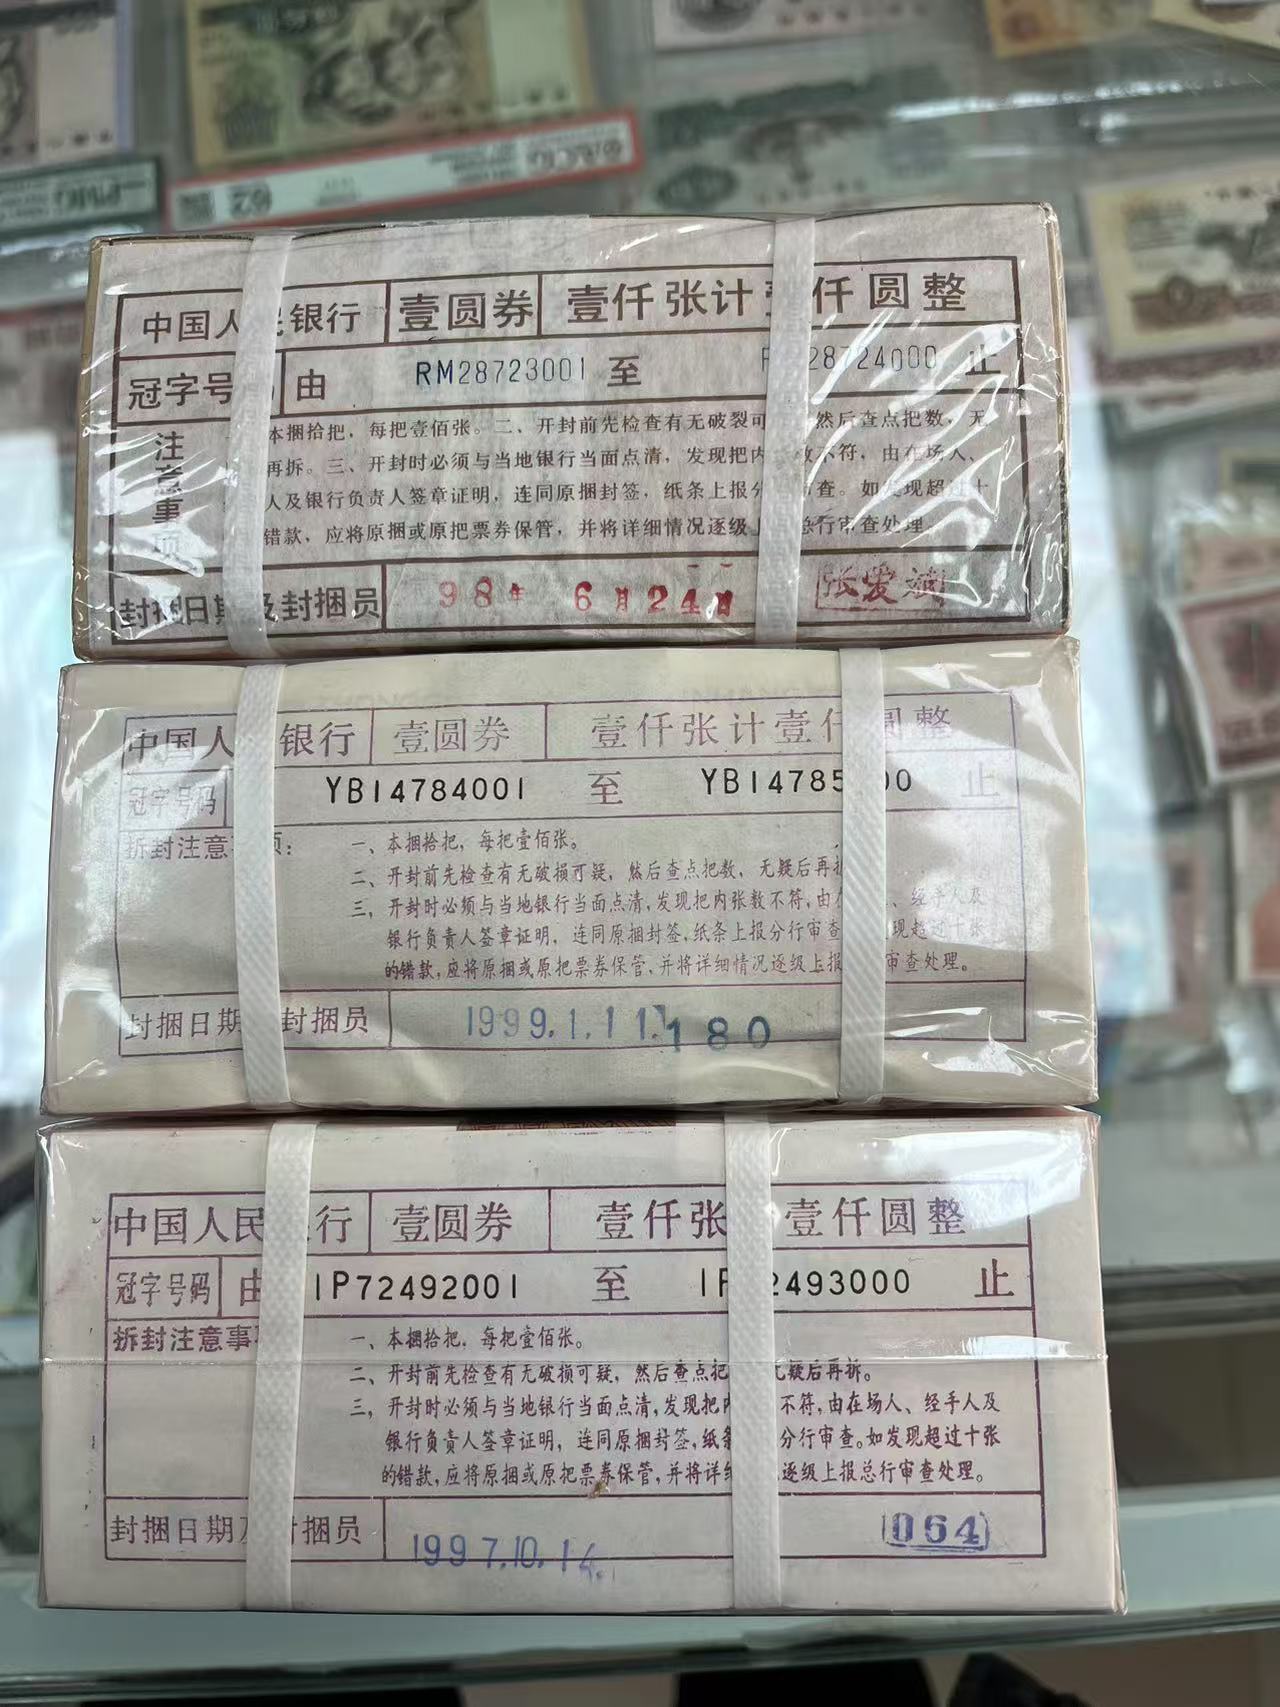 中国人民银行 壹圆券 壹仟张计壹仟圆整
冠字号 由 RM28723001 至 28724000 止
注意事项
本捆拾把，每把壹佰张。二、开封前先检查有无破裂可 然后查点把数，无
再拆。三、开封时必须与当地银行当面点清，发现把内 不符，由在场人、
人及银行负责人签章证明，连同原捆封签，纸条上报分 审查。如发现超过十
错款，应将原捆或原把票券保管，并将详细情况逐级上 总行审查处理。
封捆日期及封捆员 98年 6月24日 张爱斌
中国人 银行 壹圆券 壹仟张计壹仟圆整
冠字号码 YB14784001 至 YB14785 00 止
拆封注意 项： 一、本捆拾把，每把壹佰张。
二、开封前先检查有无破损可疑，然后查点把数，无疑后再拆
三、开封时必须与当地银行当面点清，发现把内张数不符，由在 、经手人及
银行负责人签章证明，连同原捆封签，纸条上报分行审查 现超过十张
的错款，应将原捆或原把票券保管，并将详细情况逐级上报 审查处理。
封捆日期 封捆员 1999.1.11. 180
中国人民 行 壹圆券 壹仟张 壹仟圆整
冠字号码 由 IP72492001 至 IP 2493000 止
拆封注意事 一、本捆拾把，每把壹佰张。
二、开封前先检查有无破损可疑，然后查点把 无疑后再拆。
三、开封时必须与当地银行当面点清，发现把内 不符，由在场人、经手人及
银行负责人签章证明，连同原捆封签，纸条 分行审查。如发现超过十张
的错款，应将原捆或原把票券保管，并将详细 逐级上报总行审查处理。
封捆日期及封捆员 1997.10.14. 064